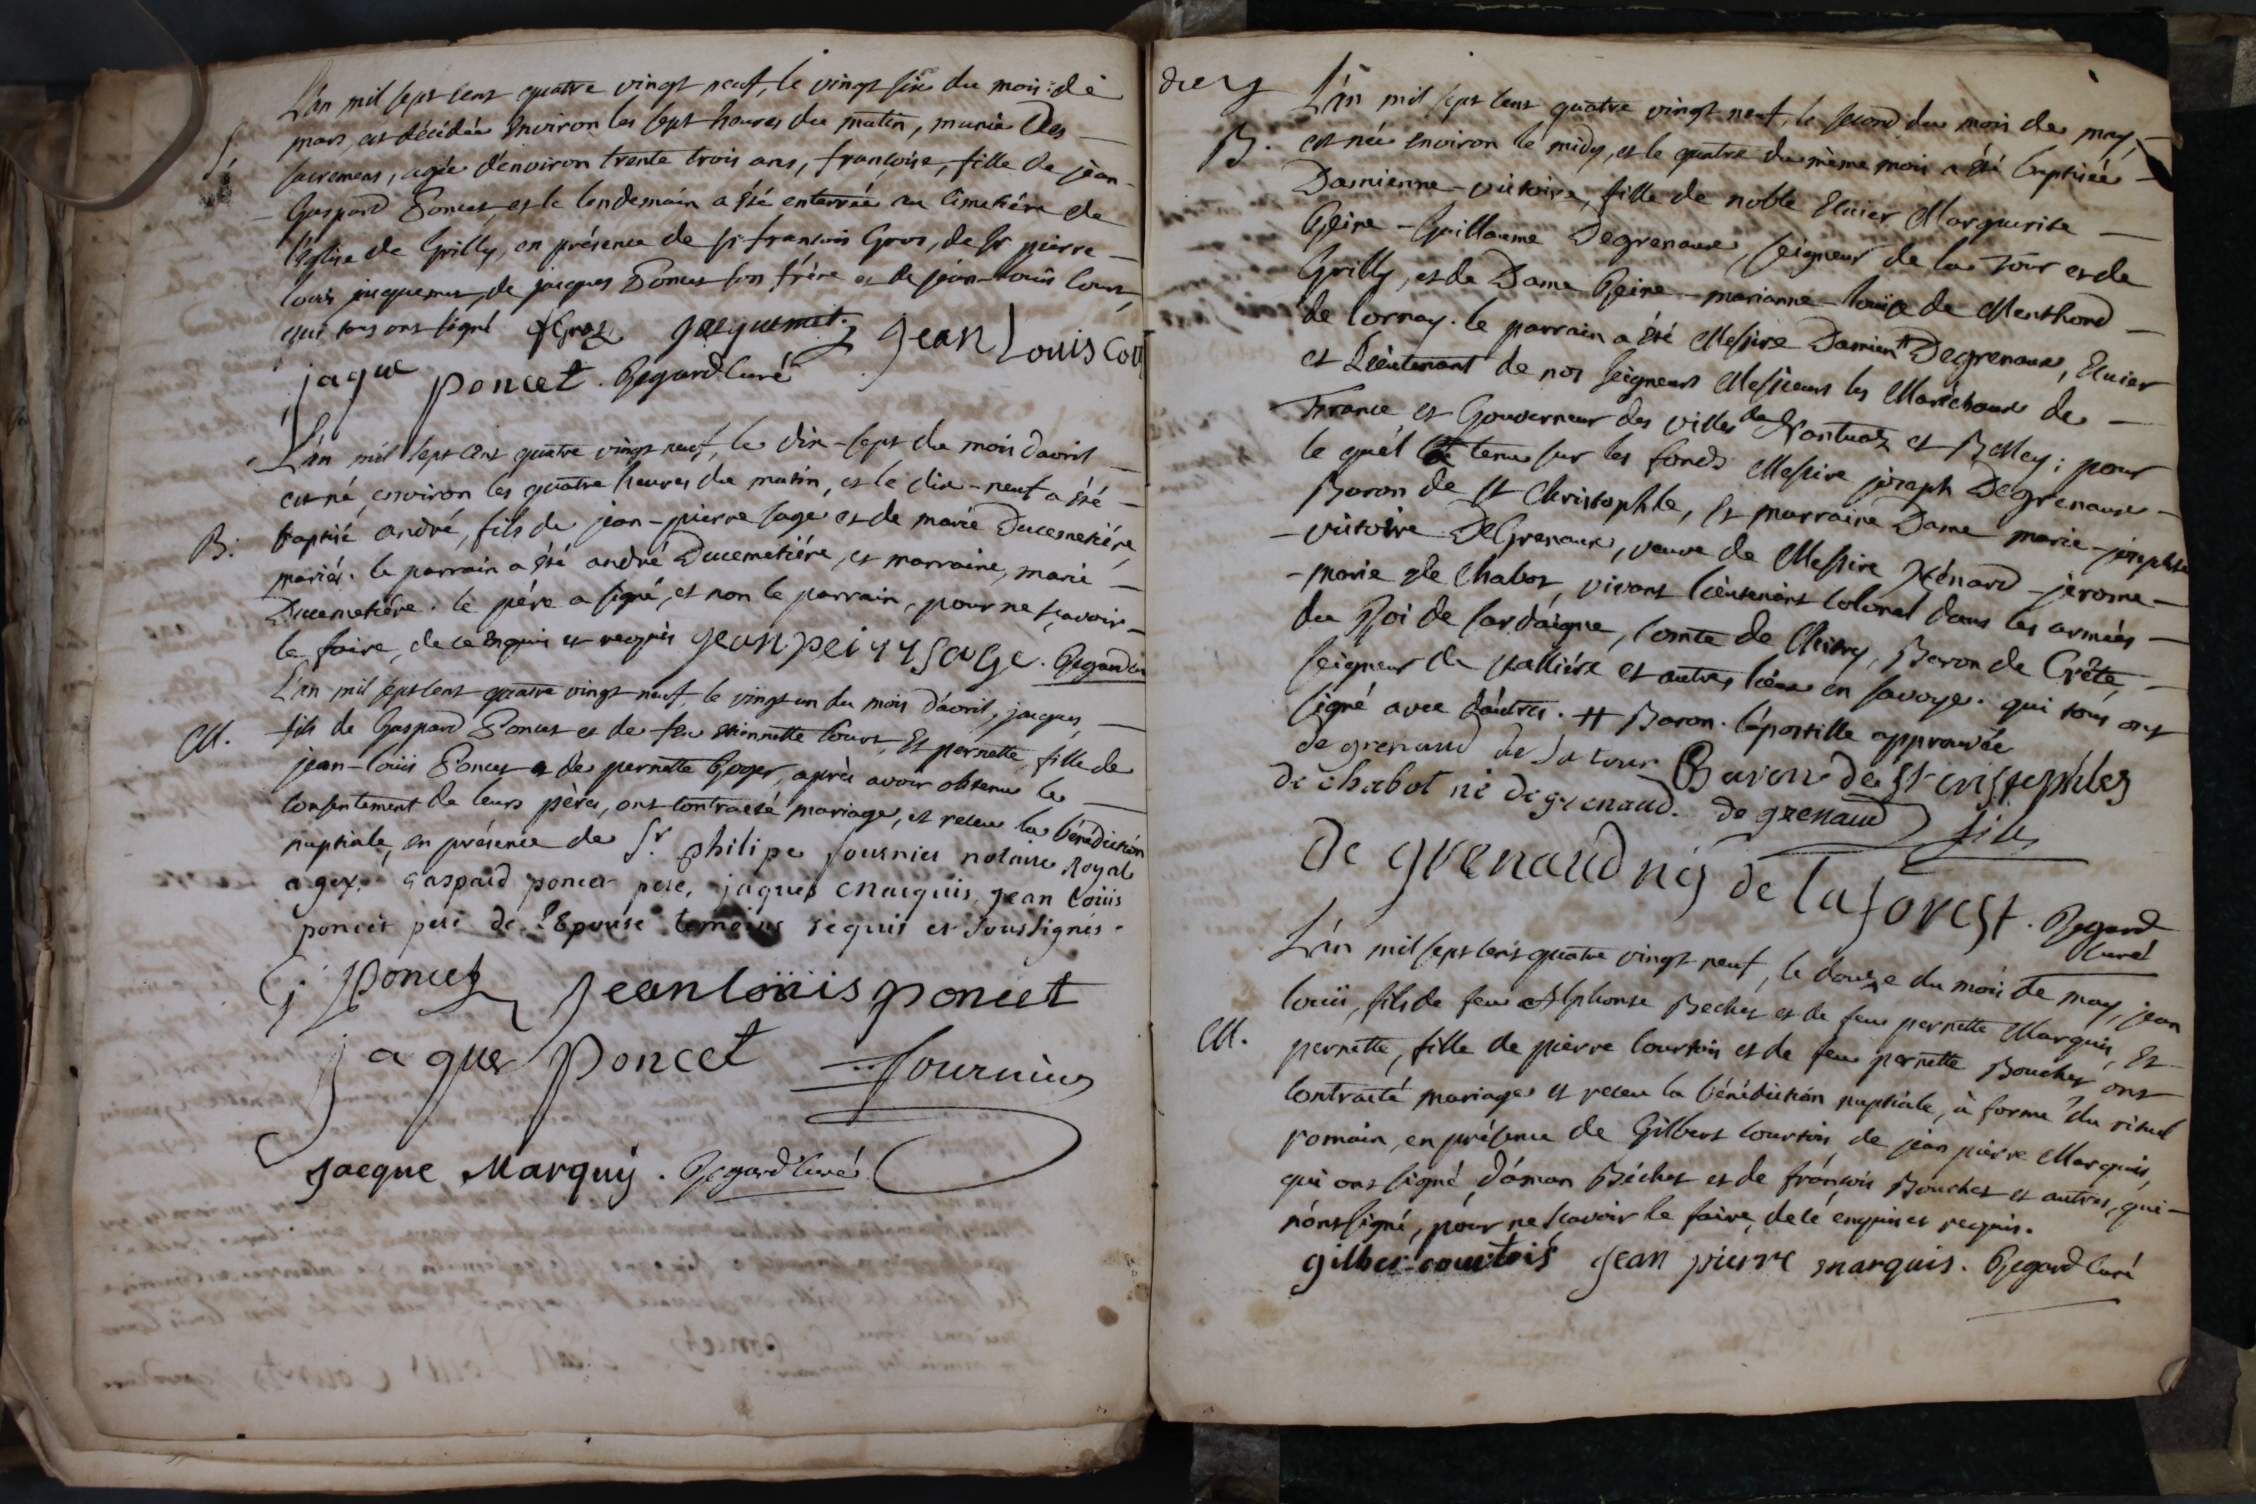 L'an mil sept cent quatre vingt neuf, le vingt six du mois de
S. mars, est décédée environ les sept heures du matin, munie des
sacremens, agée d'environ trente trois ans, françoise, fille de jean-
Gaspard Poncet, et le lendemain a été enterrée au Cimetiére de
l'église de Grilly, en présence de Sr françois Gros, de Sr pierre
louis jacquemet, de jacques Poncet son frère et de jean-louis Court,
qui tous ont signé fGroz Jacquemet Jean Louis Cou
jaque poncet. Regard Curé
L'an mil sept cent quatre vingt neuf, le dix-sept du mois d'avril
est né, environ les quatre heures du matin, et le dix-neuf a été
B. baptisé andré, fils de jean-pierre sage et de marie Ducemetiére,
mariés. le parrain a été andré Ducemetiére, et marraine, marie
Ducemetiére. le pére a signé, et non le parrain, pour ne sçavoir
le faire, de ce enquis et requis jean peirr sage. Regard cu
L'an mil sept cent quatre vingt neuf, le vingt un du mois d'avril, jacques,
M. fils de Gaspard Poncet et de feu etiennette Court, Et pernette, fille de
jean-louis Poncet & de pernette Roger, après avoir obtenu le
consentement de leurs pères, ont contracté mariage, et receu la bénédiction
nuptiale, en présence de Sr. philipe fournier notaire Royal
a gex, gaspard poncet pere, jaques Marquis, jean loüis
poncet pere de l'Epouse temoins requis et soussignés.
G j Poncet jean loüis poncet
jaques poncet fournier
jacque Marquis. Regard Curé
L'an mil sept cent quatre vingt neuf, le second du mois de may,
B. est née environ le midy, et le quatre du même mois a été baptisée
Damienne-victoire, fille de noble Ecuier Marguerite
Reine-Guillaume Degrenaux, seigneur de la Tour et de
Grilly, et de Dame Reine-marianne-louïse de Menthond
de Cornay. le parrain a été Messire Damien # Degrenaux, Ecuier
et Lieutenant de nos seigneurs Messieurs les Maréchaux de
France et Gouverneur des villes de Nantuaz et Belley; pour
le quel a tenu sur les fonds Messire joseph Degrenaux
Baron de St Christophle, et marraine Dame marie-josephte
-victoire DeGrenaux, veuve de Messire Hénard-jerome-
-marie de Chabot, vivant lieutenant Colonel dans les armées
du Roi de Sardaigne, Comte de Chitry, Baron de Crête,
seigneur de valliére et autres lieux en savoye. qui tous ont
signé avec d'autres. # Baron. l'apostille approuvée
de grenaud de la tour Baron de St cristophles
de chabot né de grenaud. de grenaud fils
De grenaud né de Laforest. Regard
Curé
L'an mil sept cent quatre vingt neuf, le douze du mois de may, jean
loüis, fils de feu Alphonse Bechet et de feu pernette Marquis, Et
M. pernette, fille de pierre Courtois et de feu pernette Bouchet ont
contracté mariage et receu la bénédiction nuptiale, à forme du rituel
romain, en présence de Gilbert Courtois, de jean pierre Marquis,
qui ont signé, d'aman Béchet et de françois Bouchet et autres, qui
n'ont signé, pour ne sçavoir le faire, de ce enquis et requis.
gilber courtois jean pierre marquis. Regard Curé